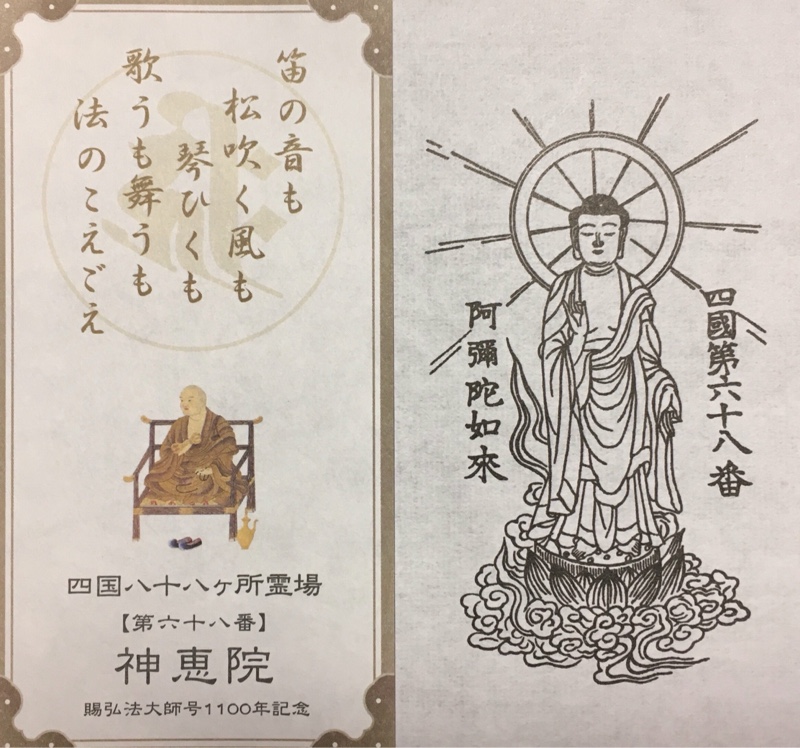 笛の音も
松吹く風も
琴ひくも
歌うも舞うも
法のこえごえ
四国八十八ヶ所霊場
【第六十八番】
神恵院
賜弘法大師号1100年記念
四國第六十八番
阿彌陀如來